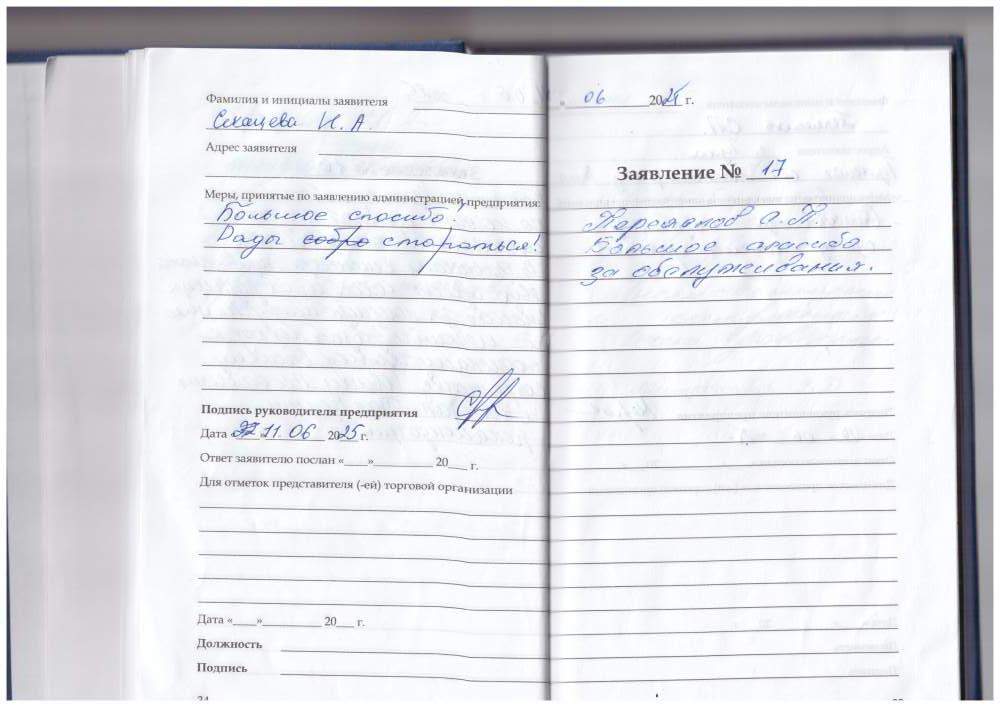 Фамилия и инициалы заявителя
И. А.
Адрес заявителя
Меры, принятые по заявлению администрацией предприятия:
Большое спасибо!
Рады стараться!
Подпись руководителя предприятия
Дата « 11.06 2025 г.
Ответ заявителю послан «____»__________ 20___ г.
Для отметок представителя (-ей) торговой организации
Дата «____»__________ 20___ г.
Должность
Подпись
06 2025 г.
Заявление № 17
А. П.
Большое спасибо
за обслуживания.